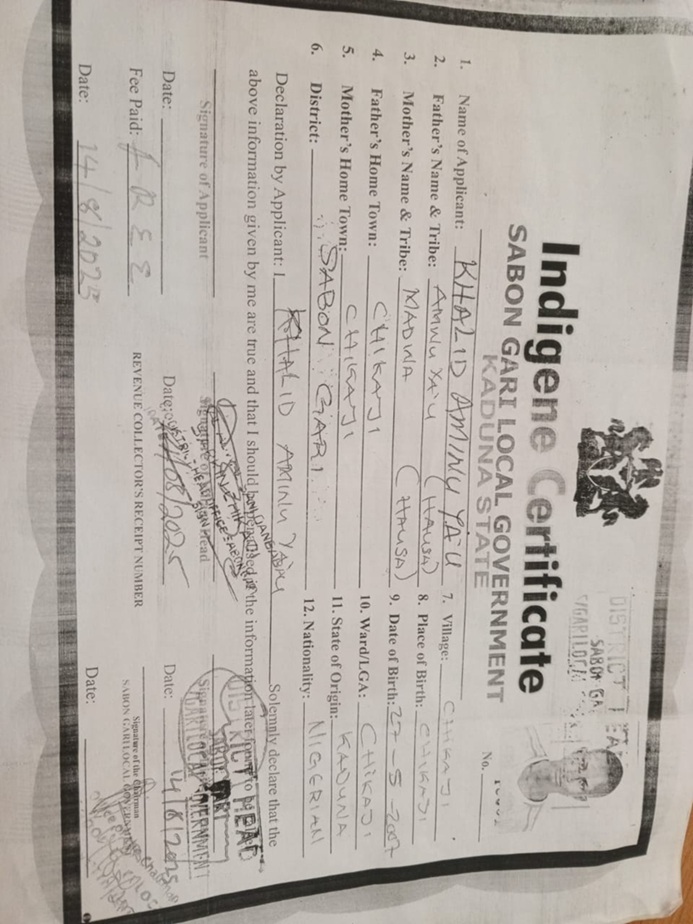 Indigene Certificate
SABON GARI LOCAL GOVERNMENT
KADUNA STATE
DISTRICT HEAD
SABON GA
No.
1. Name of Applicant: KHALID AMINU YA'U
2. Father's Name & Tribe: AMINU YA'U (HAUSA)
3. Mother's Name & Tribe: (HAUSA)
4. Father's Home Town: CHIKAJI
5. Mother's Home Town: CHIKAJI
6. District: SABON GARI
7. Village: CHIKAJI
8. Place of Birth: CHIKAJI
9. Date of Birth: 27-5-2007
10. Ward/LGA: CHIKAJI
11. State of Origin: KADUNA
12. Nationality: NIGERIAN
Declaration by Applicant: I KHALID AMINU YA'U Solemnly declare that the
above information given by me are true and that I should be the information later
Signature of Applicant
DISTRICT HEAD
SABON GARI
LOCAL GOVERNMENT
Date: Date: /08/2025 Date: 14/8/2025
Fee Paid: FREE REVENUE COLLECTOR'S RECEIPT NUMBER
Signature of the Chairman
SABON GARI LOCAL GOVERNMENT
Date: 14/8/2025 Date: